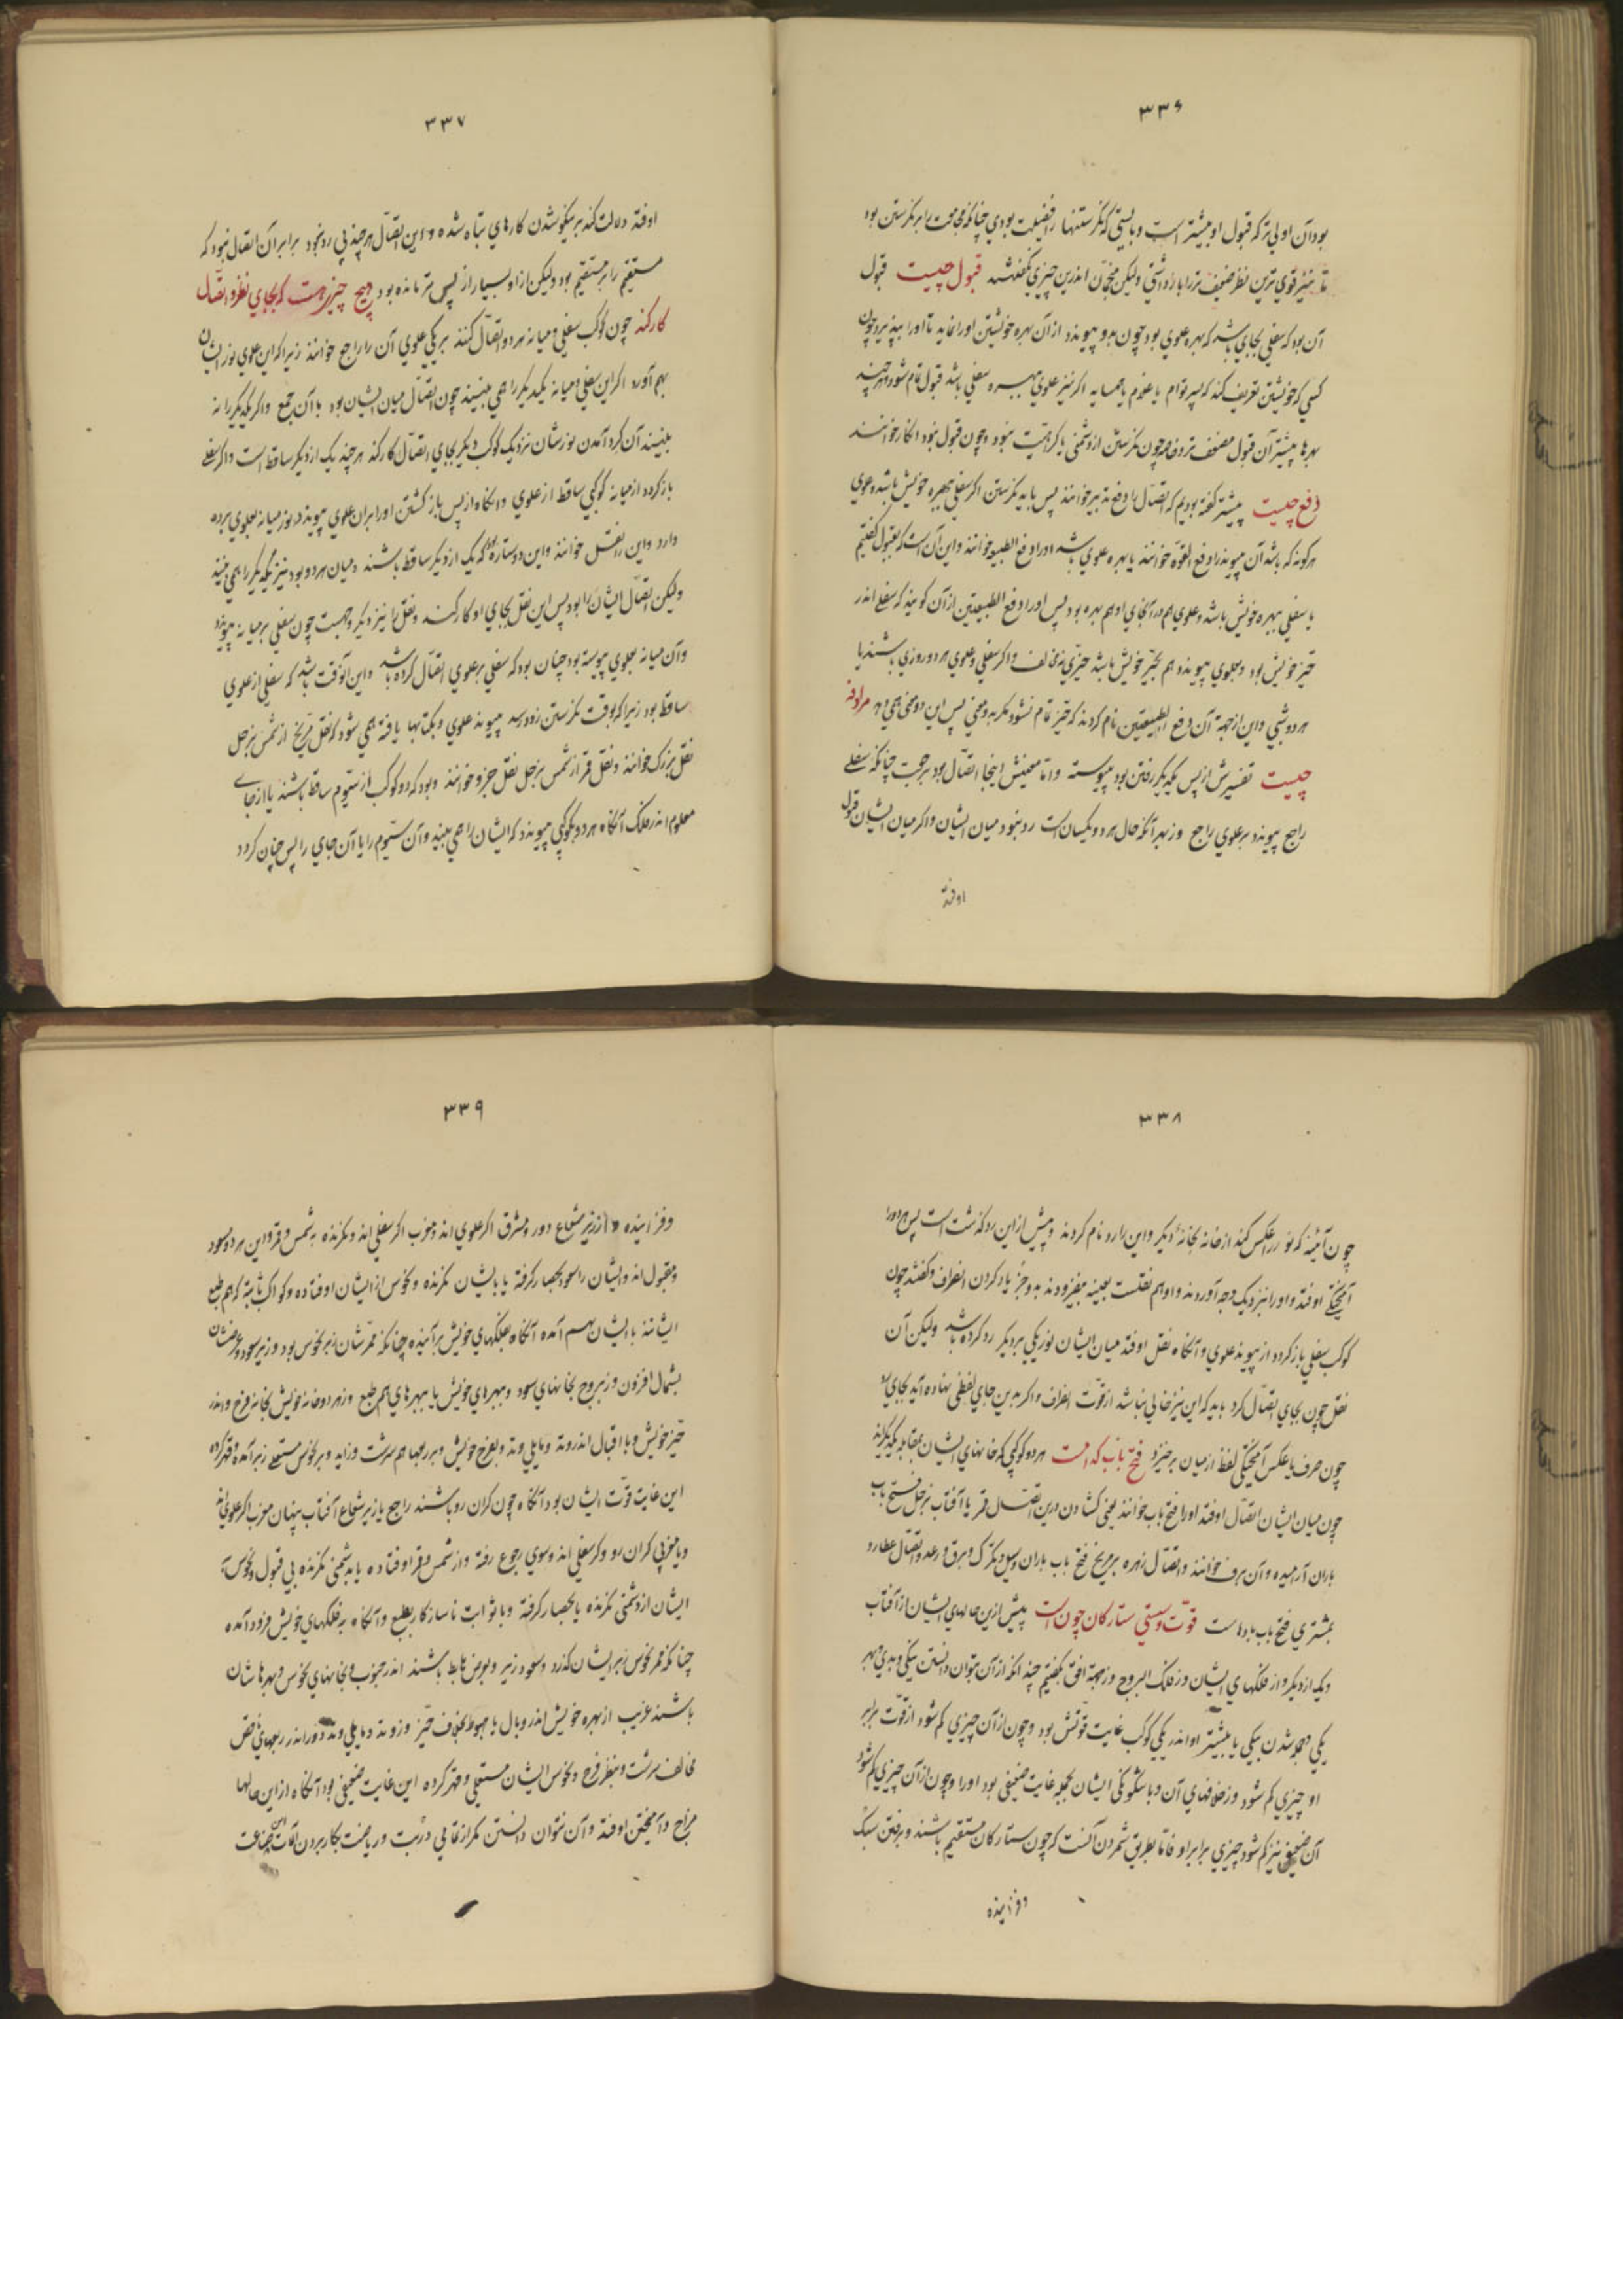 ۳۳۶
بود آن اولی‌تر که قبول او بیشتر است و بایستی که نگرستنها را فضیلت بودی چنانکه مجامعت را بر نگرستن بود
تا نیز قوی‌ترین نظر ضعیف‌تر را بازداشتی ولیکن منجمان اندرین چیزی نگفتند قبول چیست قبول
آن بود که سفلی بجای باشد که بهره علوی بود چون بدو پیوندد از آن بهره خویشتن او را نماید تا او را بپذیرد چون
کسی که خویشتن تعریف کند که پسر توام یا غلام یا همسایه اگر نیز علوی ببهره سفلی باشد قبول تمام شود هر چند
بهرها بیشتر آن قبول مضعف‌تر و خاصه چون نگرستن از دشمنی یا کراهیت نبود و چون قبول نبود انکار خوانند
دفع چیست پیشتر گفته بودیم که اتصال را دفع تدبیر خوانند پس باید نگرستن اگر سفلی ببهره خویش باشد و علوی
هر گونه که باشد آن پیوند را دفع القوه خوانند یا بهره علوی باشد او را دفع الطبیعه خوانند و این آن است که بقبول گفتیم
یا سفلی ببهره خویش باشد و علوی هم در آنجای او هم بهره بود پس او را دفع الطبیعتین از آن گویند که سفلی اندر
حیز خویش بود و بعلوی پیوندد هم بحیز خویش باشد حیزی نه مخالف و اگر سفلی و علوی هر دو روزی باشند یا
هر دو شبی و این از جهت آن دفع الطبیعتین نام کردند که حیز تمام نشود مگر بدو معنی پس این دو معنی همی دهد مرادفه
چیست تفسیرش از پس یکدیگر رفتن بود پیوسته و اما معنیش اینجا اتصال بود برجعت چنانکه سفلی
راجع پیوندد بر علوی راجع و ز بهر آنکه حال هر دو یکسان است رد نبود میان ایشان و اگر میان ایشان قبول
اوفتد
۳۳۷
اوفتد دلالت کند بر نیکو شدن کارهای تباه شده و این اتصال هر چند بی رد نبود برابر آن اتصال نبود که
مستقیم را بر مستقیم بود ولیکن از او بسیار از پس‌تر مانده بود هیچ چیز هست که بجای نظر و اتصال
کار کند چون کوکب سفلی و میانه هر دو اتصال کنند بر یکی علوی آن را راجع خوانند زیرا که این علوی نور ایشان
بهم آورد اگر این سفلی و میانه یکدیگر را همی بینند چون اتصال میان ایشان بود با آن جمع و اگر یکدیگر را نه
بینند آن گرد آمدن نورشان نزدیک کوکب دیگر بجای اتصال کار کند هر چند یک از دیگر ساقط است و اگر سفلی
باز گردد از میانه کوکبی ساقط از علوی و آنگاه از پس باز گشتن او را بر آن علوی پیوندد نور میانه بعلوی برده
دارد و این را نقل خوانند و این دو ستاره بود که یک از دیگر ساقط باشند و میان هر دو بود نیز یکدیگر را همی بینند
ولیکن اتصال ایشان را بود پس این نقل بجای او کار کند و نقل را نیز دیگر وجهیست چون سفلی بر میانه پیوندد
و آن میانه بعلوی پیوسته بود چنان بود که سفلی بر علوی اتصال کرده باشد و این آنوقت باشد که سفلی از علوی
ساقط بود زیرا که بوقت نگرستن زودرسد پیوند علوی و بکتابها یافته همی شود که نقل مریخ از شمس بزحل
نقل بزرگ خوانند و نقل قمر از شمس بزحل نقل جزو خوانند و بود که دو کوکب از سیوم ساقط باشند یا از جای
معلوم اندر فلک آنگاه هر دو بکوکبی پیوندد که ایشان را همی بیند و آن سیوم را یا آن جای را پس چنان گردد
۳۳۸
چون آئینه که نور را عکس کند از خانه بخانهٔ دیگر و این را رد نام کردند و پیش از این رد گذشت است پس هر دو را
آمیختگی اوفتد و او را نیز دیگ وجه آوردند و او هم نقلست بعینه بیفزودند بدو جز یاد کران انصراف و گفتند چون
کوکب سفلی باز گردد از پیوند علوی و آنگاه نقل اوفتد میان ایشان نور یکی بر دیگر رد کرده باشد ولیکن آن
نقل چون بجای اتصال کرد باید که این نیز خالی نباشد از قوت انصراف و اگر بدین جای لفظی نهاده آید بجای رد
چون صرف یا عکس آمیختگی لفظ از میان برخیزد فتح باب کدامست هر دو کوکبی که خانهای ایشان بمقابله یکدیگرند
چون میان ایشان اتصال اوفتد او را فتح باب خوانند یعنی گشادن در این اتصال قمر یا آفتاب بزحل فتح باب
باران آرامیده و آن برف خوانند و اتصال زهره بر مریخ فتح باب باران و سیل و تگرگ و برق و رعد و اتصال عطارد
بمشتری فتح باب بادهاست قوت و سستی ستارگان چون است پیش ازین حالهای ایشان از آفتاب
و یک از دیگر و از فلکهای ایشان و ز فلک البروج و ز جهت افق بگفتیم چند انکه از آن بتوان دانستن نیکی و بدی بهر
یکی و بجمله شدن نیکی یا بیشتر او اندر یکی کوکب غایت قوتش بود و چون از آن چیزی کم شود از قوت برابر
او چیزی کم شود و ز خلافهای آن و با سکونگی ایشان بجمله غایت ضعیفی بود او را و چون از آن چیزی کم شود
آن ضعیفی نیز کم شود چیزی برابر او فاما بطریق شمردن آنست که چون ستارگان مستقیم باشند و برفتن سبک
و فزاینده
۳۳۹
و فزاینده و از زیر شعاع دور و مشرق اگر علوی اند و مغرب اگر سفلی اند و نگرنده به شمس و قمر و این هر دو مسعود
و مقبول اند و ایشان را سعود بحصار گرفته یا بایشان نگرنده و نحوس از ایشان اوفتاده و کواکب ثابته که هم طبع
ایشانند با ایشان بهم آمده آنگاه بفلکهای خویش برآینده چنانکه ممرشان زبر نحوس بود و زیر سعود و عرضشان
بشمال افزون و ز بروج بخانهای سعود و ببهرهای خویش یا ببهرهای هم طبع و ز هر دو خانه خویش بخانه فرح و اندر
حیز خویش و با اقبال اندر وتد و مایلی وتد و بفرح خویش و بربعها هم سرشت و زاید و بر نحوس مستعلی ز بر آمده و قهر کرده
این غایت قوت ایشان بود آنگاه چون گران رو باشند راجع یا زیر شعاع آفتاب پنهان مغرب اگر علوی اند
و یا مغربی گران رو و گر سفلی اند و سوی رجوع رفته و از شمس و قمر اوفتاده یا بدشمنی نگرنده بی قبول و نحوس
ایشان از دشمنی نگرنده یا بحصار گرفته و یا ثوابت ناسازگار بطبع و آنگاه به فلکهای خویش فرود آمده
چنانکه ممر نحوس زبر ایشان گذرد و سعود زیر و بعرض هابط باشند اندر جنوب و بخانهای نحوس و بهرهاشان
باشند غریب از بهره خویش اندر وبال یا هبوط بخلاف حیز و ز وتد و مایلی وتد دور اندر ربعهای نقص
مخالف سرشت و بنظر فرح و نحوس ایشان مستعلی و قهر کرده این غایت ضعیفی بود آنگاه از این حالها
مزاج و آمیختن اوفتد و آن نتوان دانستن مگر از نقابی و دربت و ریاضت بکار بردن آلات این صناعت